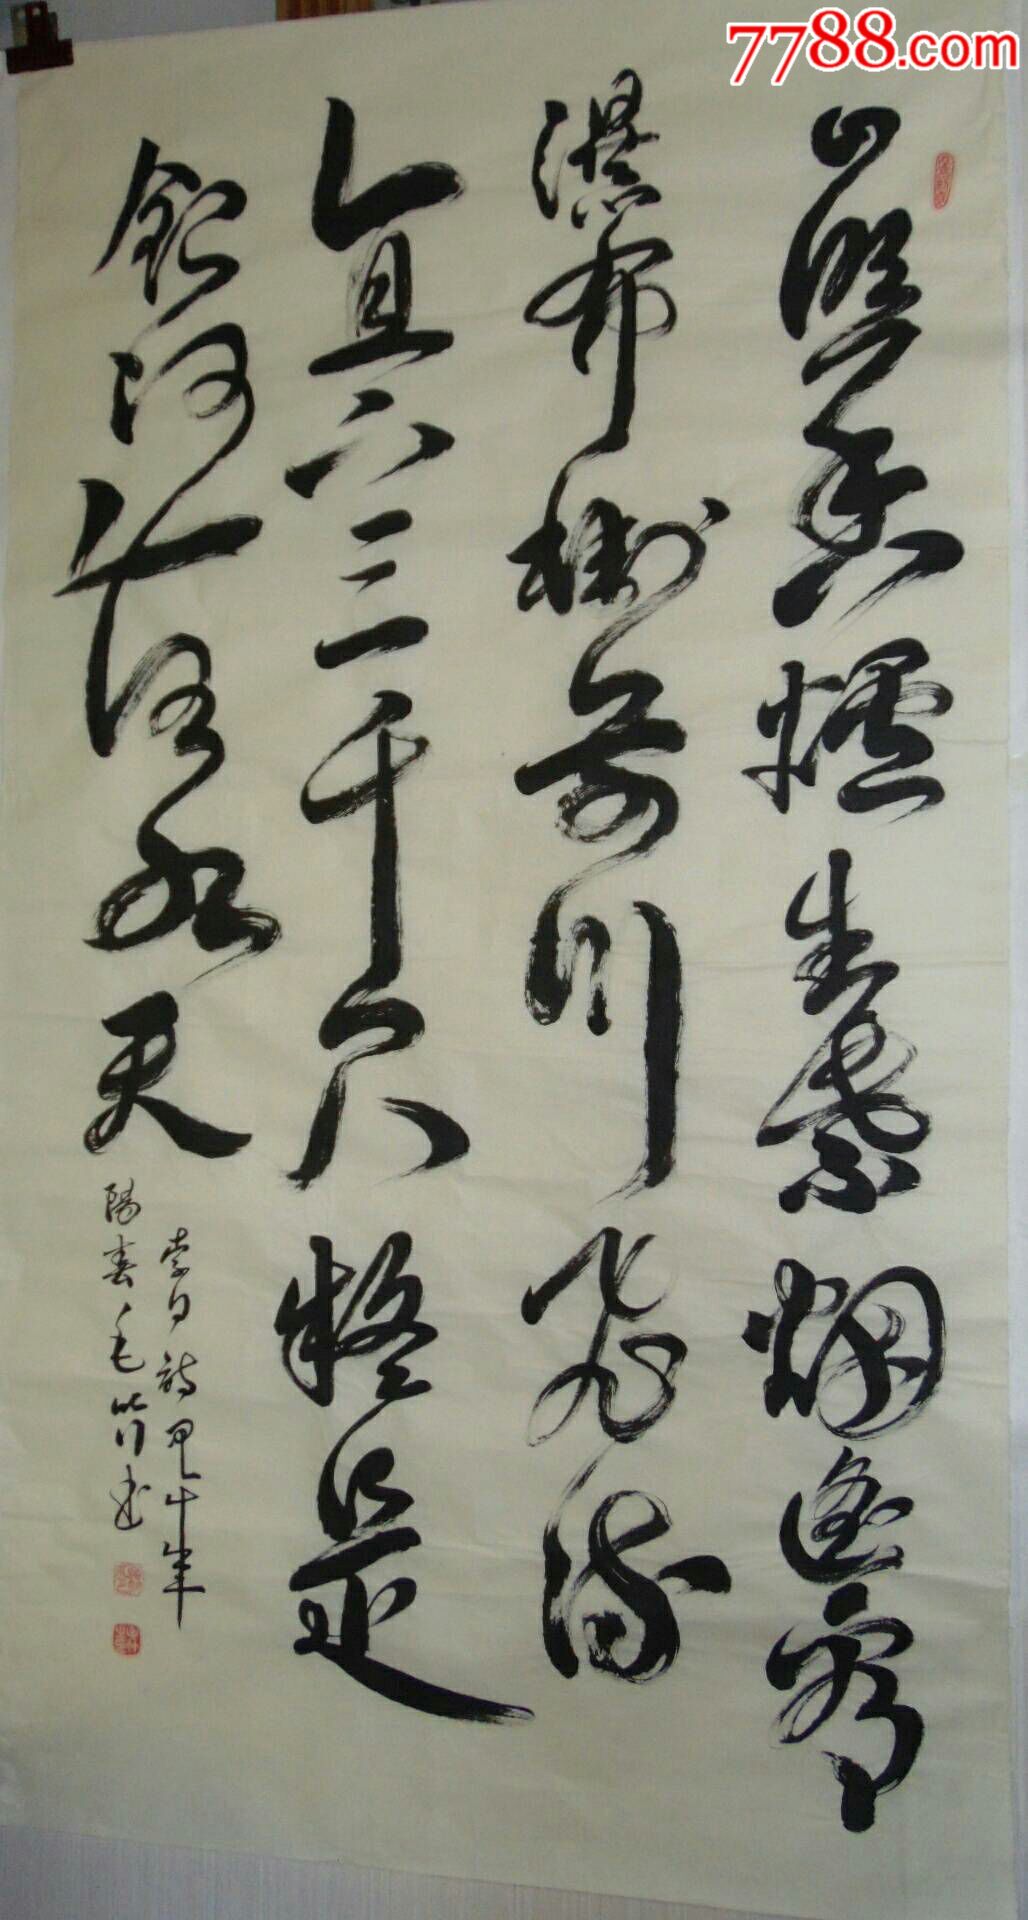 7788.com
日照香爐生紫烟遥看
瀑布掛前川飛流
直下三千尺疑是
銀河落九天
李白詩甲午年
陽春毛书